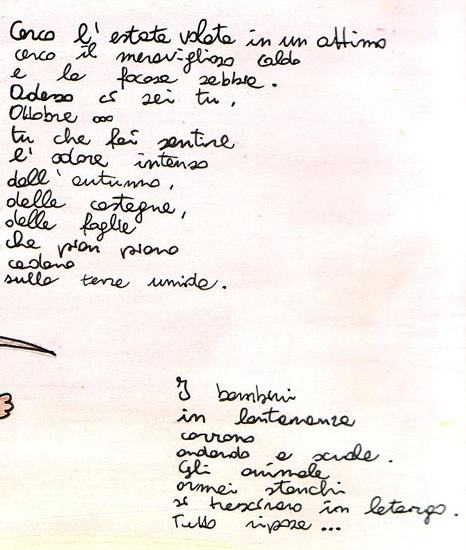 Cerco l'estate volata in un attimo
cerco il meraviglioso caldo
e la focosa sabbia.
Adesso ci sei tu,
Ottobre
tu che fai sentire
l'odore intenso
dell'autunno,
delle castagne,
delle foglie
che pian piano
cadono
sulla terra umida.
I bambini
in lontananza
corrono
andando a scuola.
Gli animali
ormai stanchi
si trascinano in letargo.
Tutto riposa...